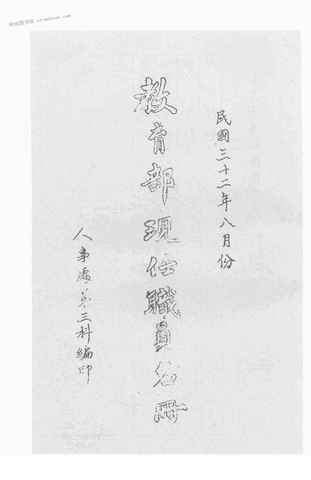 民國三十二年八月份
教育部現任職員名冊
人事處第三科編印